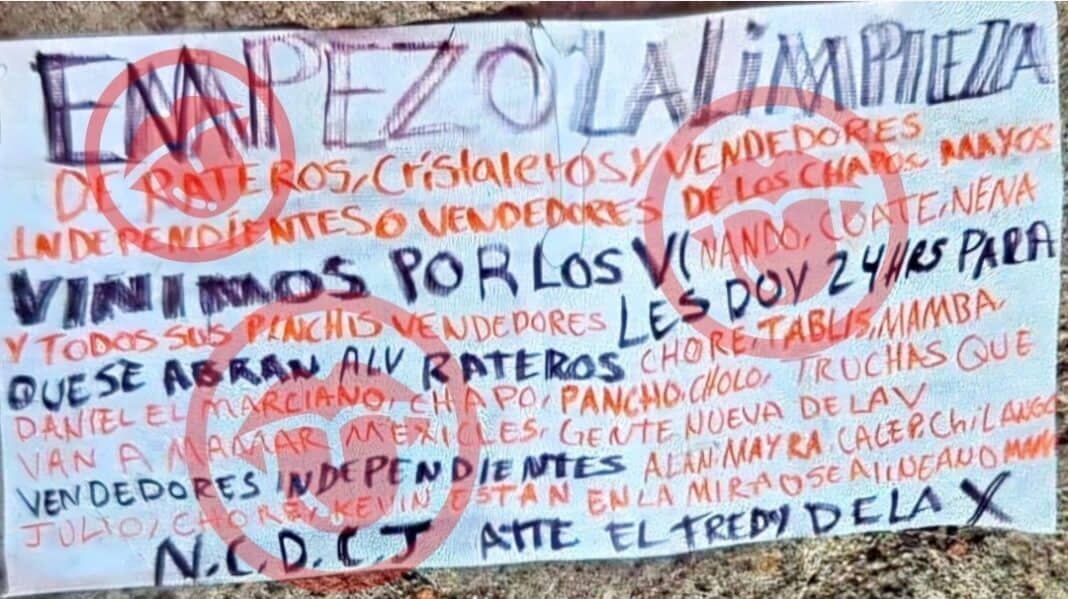 EMPEZO LA LIMPIEZA
DE RATEROS, Cristaleros Y VENDEDORES
INDEPENDIENTES O VENDEDORES DE LOS CHAPOS. MAYOS
VINIMOS POR LOS V( NANDO, COATE, NENA
Y TODOS SUS PINCHIS VENDEDORES LES DOY 24 HRS PARA
QUE SE ABRAN ALV RATEROS CHORE, TABLIS, MAMBA,
DANIEL EL MARCIANO, CHAPO, PANCHO, CHOLO, TRUCHAS QUE
VAN A MAMAR MEXICLES, GENTE NUEVA DE LA V
VENDEDORES INDEPENDIENTES ALAN, MAYRA, CALEP, CHILANGO
JULIO, CHORE, KEVIN ESTAN EN LA MIRA O SE ALINEAN O
N.C.D.C.J ATTE EL FREDY DE LA X